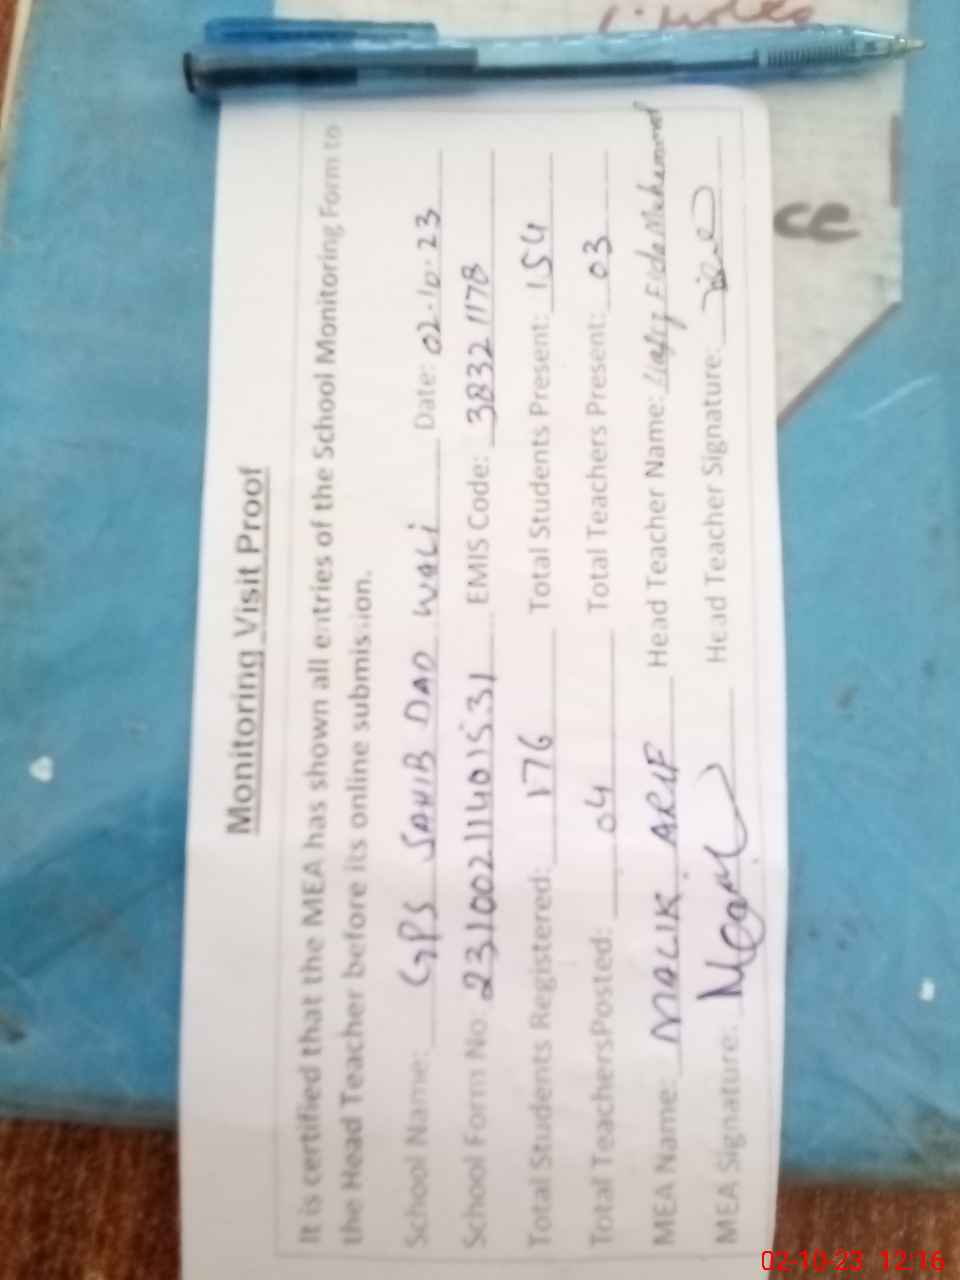 Monitoring Visit Proof
It is certified that the MEA has shown all entries of the School Monitoring Form to
the Head Teacher before its online submission.
School Name: GPS SAHIB DAD WALI Date: 02-10-23
School Form No: 23100211401531 EMIS Code: 38321178
Total Students Registered: 176 Total Students Present: 154
Total TeachersPosted: 04 Total Teachers Present: 03
MEA Name: MALIK ARIF Head Teacher Name: Fida Muhammad
MEA Signature: Head Teacher Signature:
02-10-23 12:16